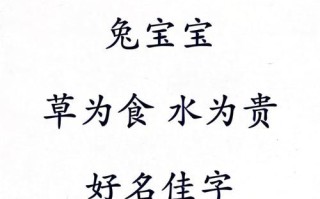 兔宝宝
草为食 水为贵
好名佳字